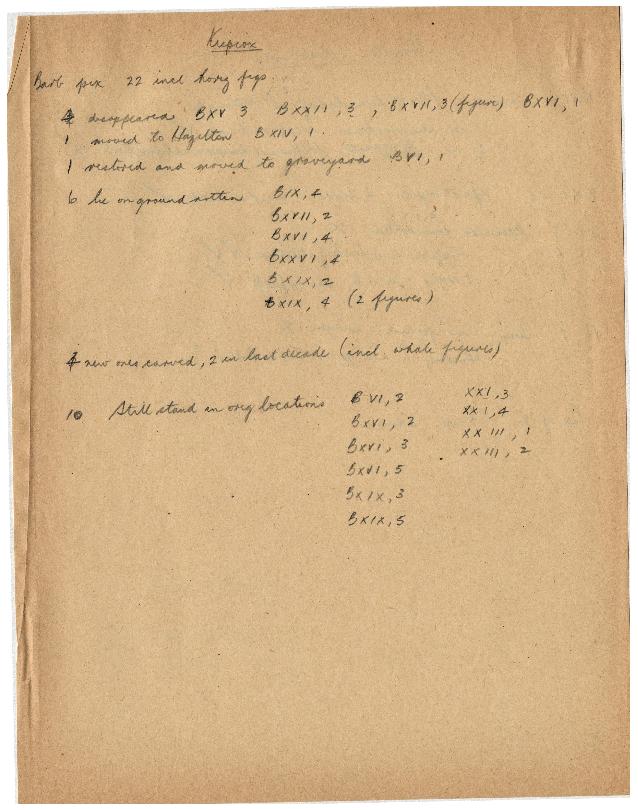 Kispiox
Barb pix 22 incl horiz figs
4 disappeared BXV 3 BXXII, 3, BXVII, 3 (figure) BXVI, 1
1 moved to Hazelton BXIV, 1.
1 restored and moved to graveyard BVI, 1
6 lie on ground rotten BIX, 4
BXVII, 2
BXVI, 4
BXXVI, 4
BXIX, 2
BXIX, 4 (2 figures)
new ones carved, 2 in last decade (incl whale figures)
10 Still stand in orig locations BVI, 2 XXI, 3
BXVI, 2 XXI, 4
BXVI, 3 XXIII, 1
BXVI, 5 XXIII, 2
BXIX, 3
BXIX, 5